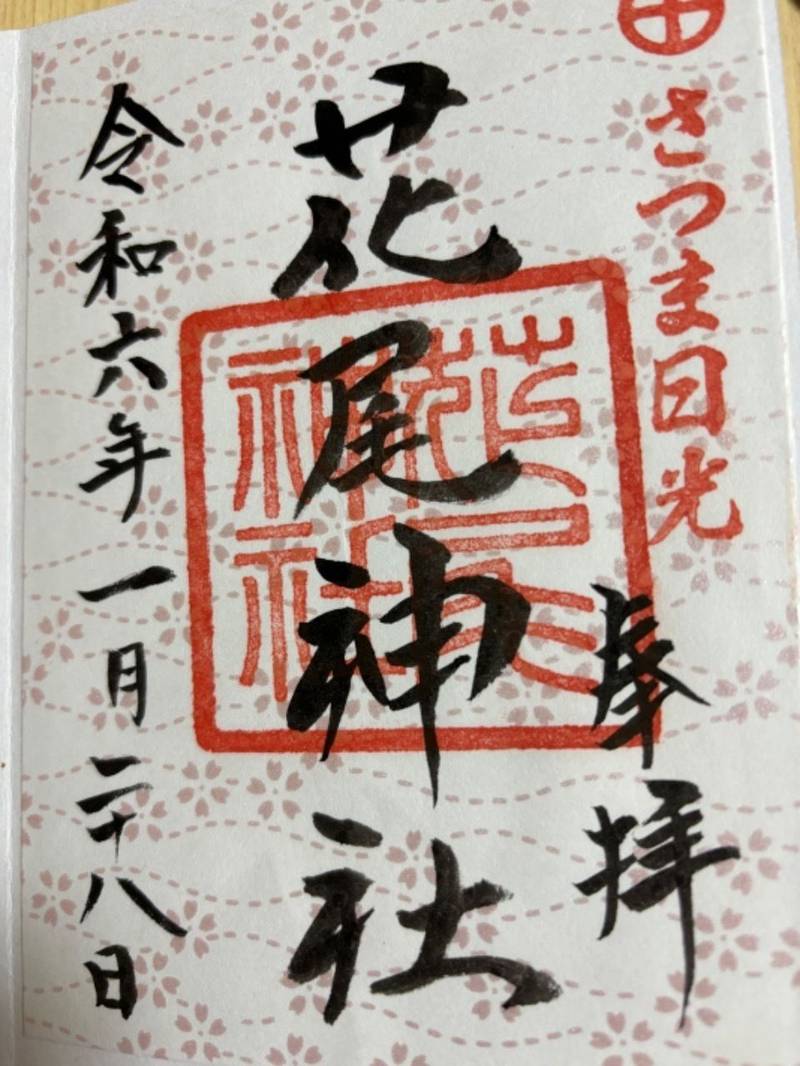 さつま日光
奉拝
花尾神社
花尾神社
令和六年一月二十八日